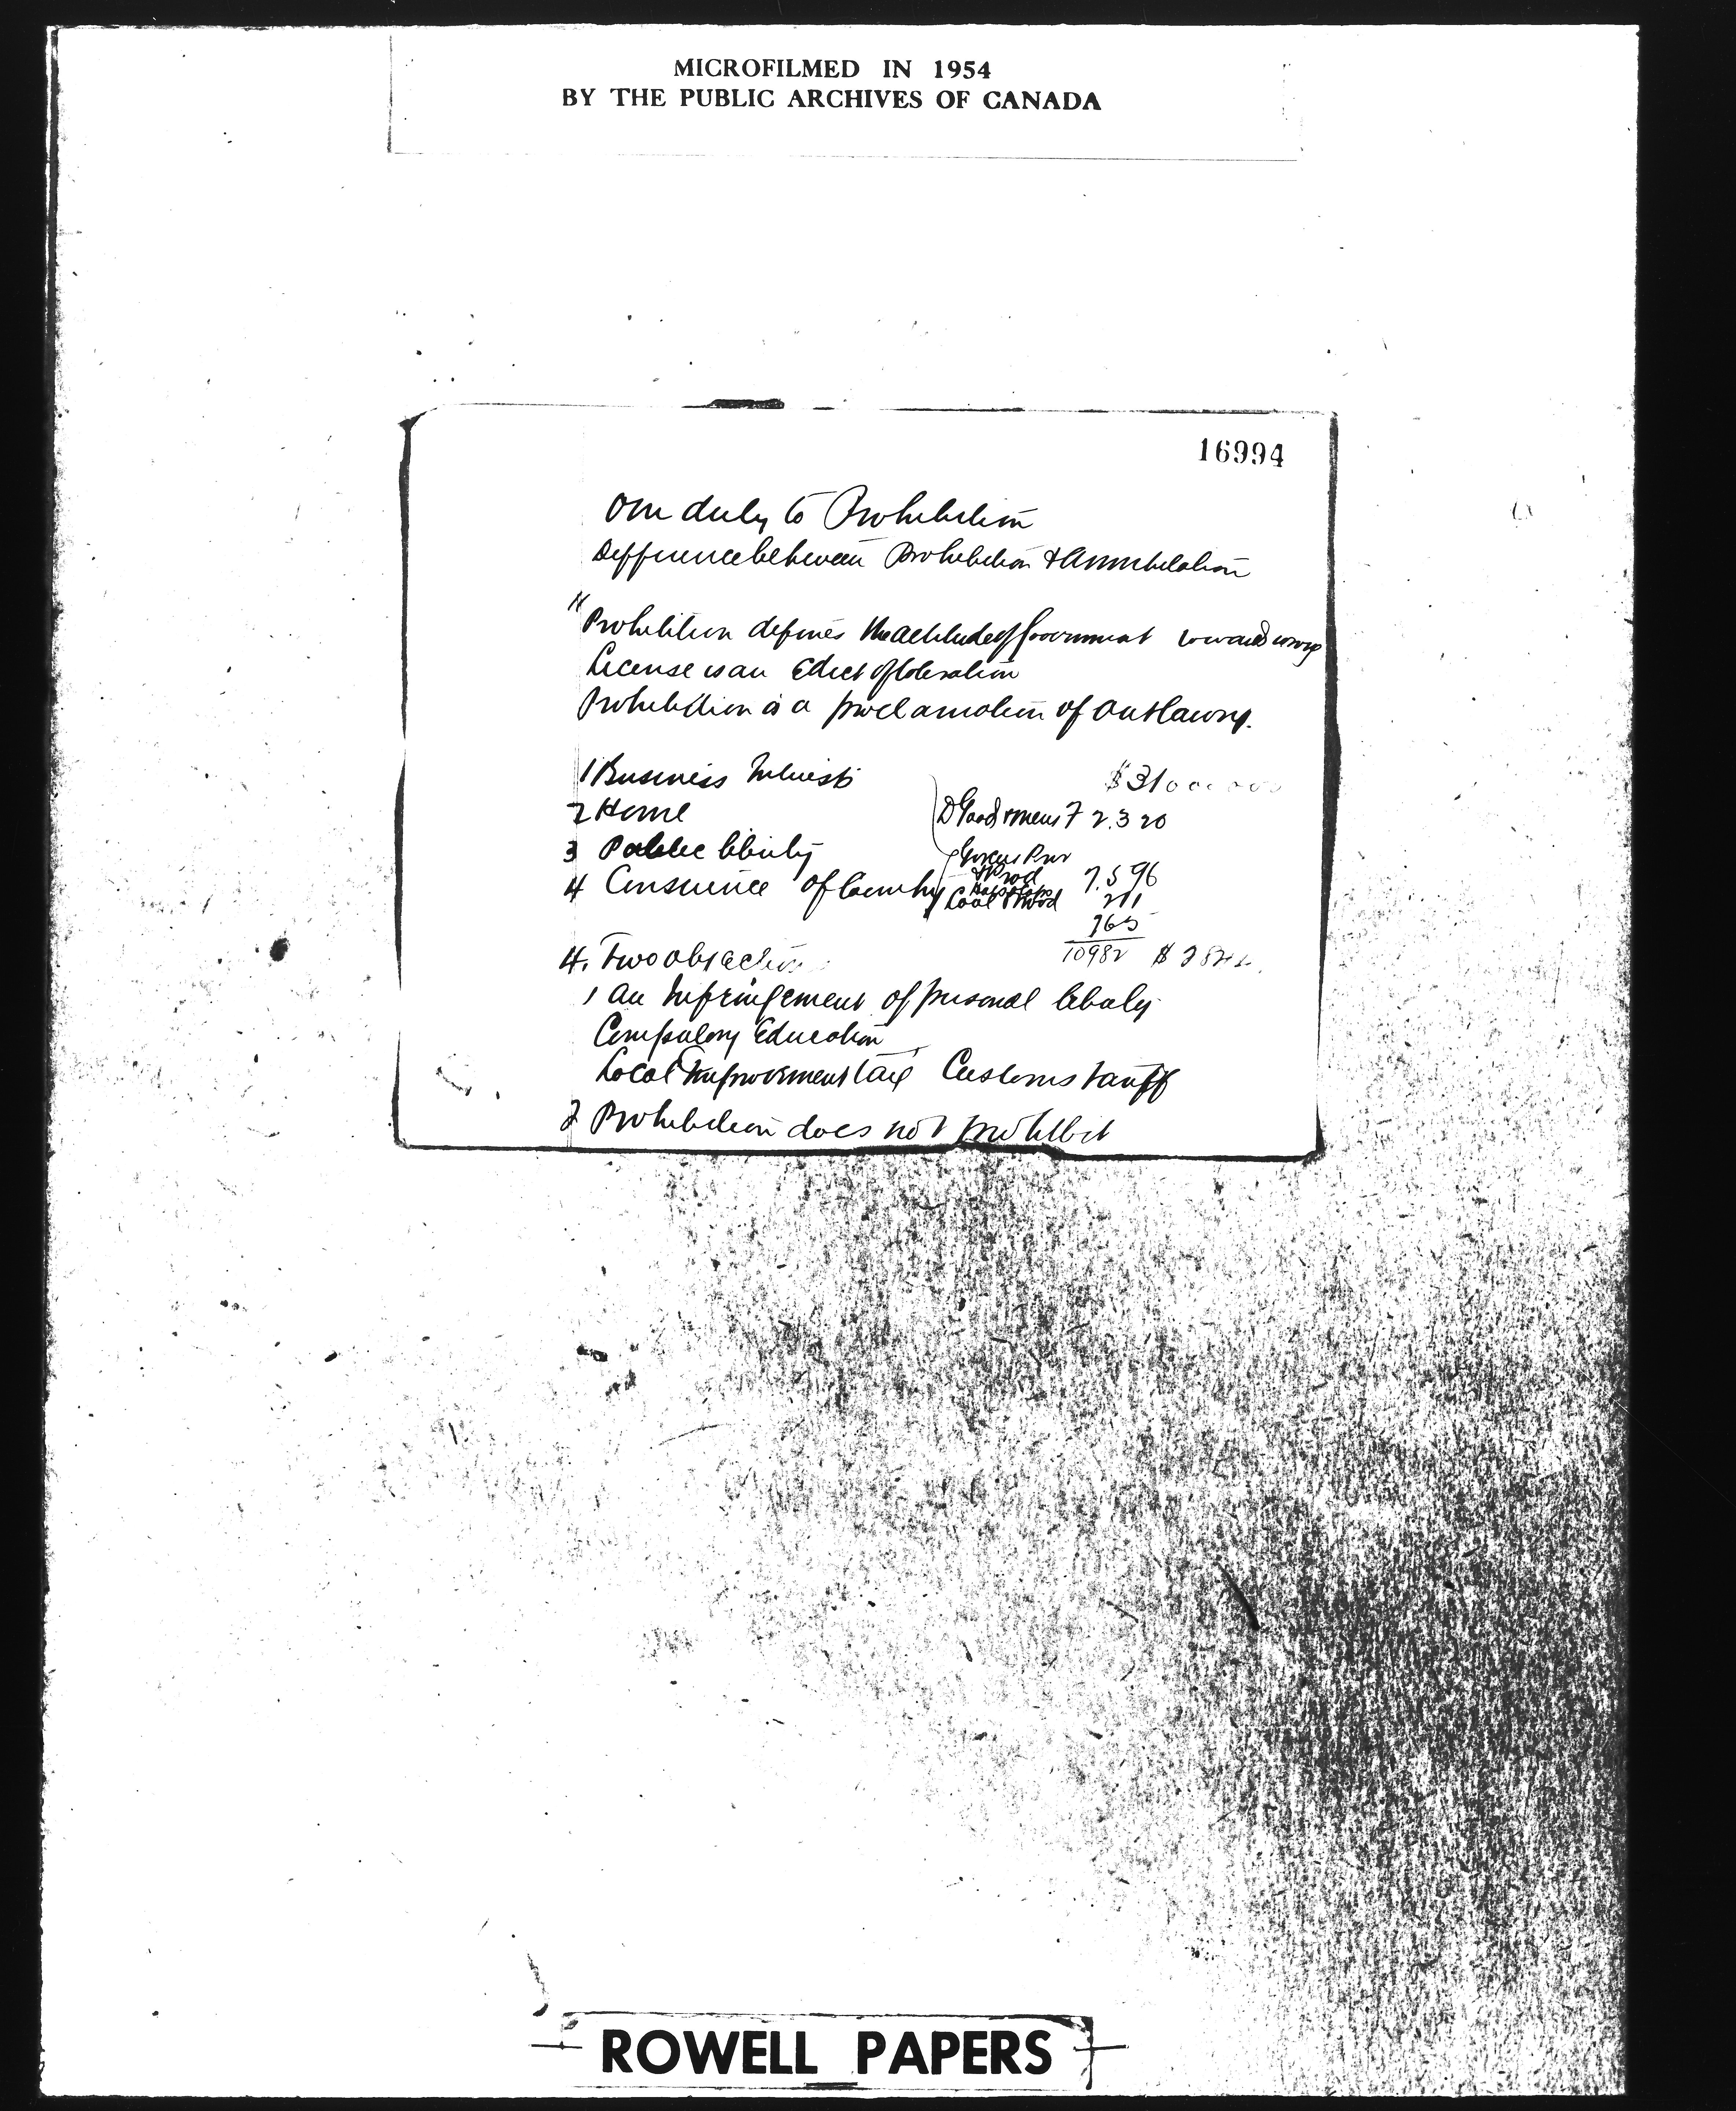 MICROFILMED IN 1954
BY THE PUBLIC ARCHIVES OF CANADA
16994
Our duty to Prohibition
Difference between Prohibition & Annihilation
Prohibition defines the attitude of Government towards wrong
License is an Edict of toleration
Prohibition is a proclamation of Outlawry.
1 Business Interests $31000000
2 Home
D Goods 7 2.320
3 Public liberty
4 Conscience of Country
& Prod 7.596
Coal & Wood 211
765
10982
4. Two objections
1 An Infringement of personal liberty
Compulsory Education
Local Improvement tax Customs tariff
2 Prohibition does not prohibit
ROWELL PAPERS